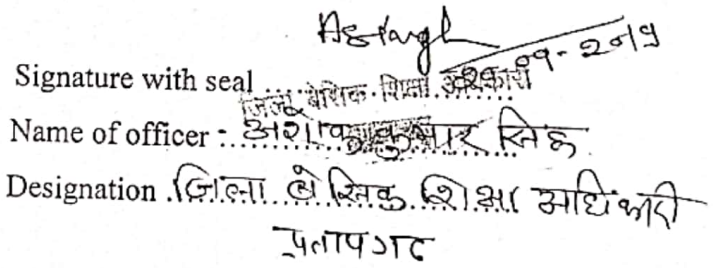 Signature with seal
जिला बेसिक शिक्षा अधिकारी
Name of officer : अशोक कुमार सिंह
Designation जिला बेसिक शिक्षा अधिकारी
प्रतापगढ